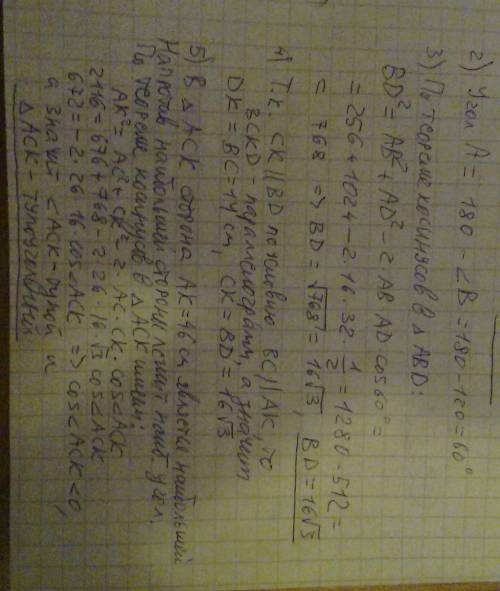 2) Угол A = 180 - ∠B = 180-120 = 60°
3) По теореме косинусов в Δ ABD:
BD² = AB² + AD² - 2 AB AD cos60° =
= 256 + 1024 - 2·16·32·1/2 = 1280 - 512 =
= 768 => BD = √768 = 16√3, BD = 16√3
4) Т.к. CK || BD по условию BC || AK, то
BCKD - параллелограм, а значит
DK = BC = 14 см, CK = BD = 16√3
5) В Δ ACK сторона AK = 46 см является наибольшей
Напротив наибольшей стороны лежит наиб. угол.
По теореме косинусов в Δ ACK имеем:
AK² = AC² + CK² - 2·AC·CK·cos<ACK
2116 = 676 + 768 - 2·26·16√3 cos<ACK
672 = -2·26·16 cos<ACK => cos<ACK <0,
а значит <ACK - тупой и
Δ ACK - тупоугольный